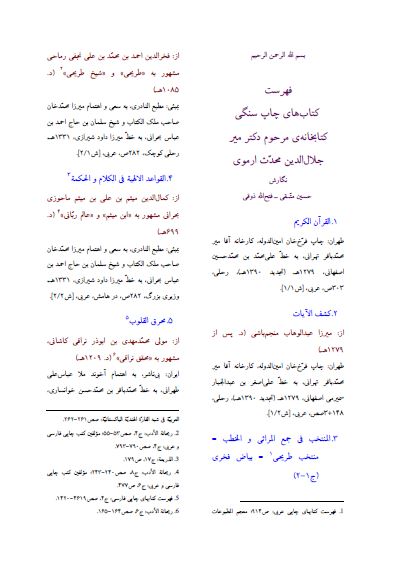 بسم الله الرحمن الرحیم
فهرست
کتاب‌های چاپ سنگی
کتابخانه‌ی مرحوم دکتر میر
جلال‌الدین محدّث ارموی
نگارش
حسین متّقی ــ فتح‌الله ذوقی
۱.القرآن الکریم
طهران: چاپ فرّخ‌خان امین‌الدوله، کارخانه آقا میر
محمّدباقر تهرانی، به خطّ علی‌محمّد بن محمّدحسین
اصفهانی، ۱۲۷۹هـ (تجدید ۱۳۹۰هـ)، رحلی،
۳۰۳ص، عربی، [ش۱/۱].
۲.کشف الآیات
از: میرزا عبدالوهاب منجم‌باشی (د. پس از
۱۲۷۹هـ)
طهران: چاپ فرّخ‌خان امین‌الدوله، کارخانه آقا میر
محمّدباقر تهرانی، به خطّ علی‌اصغر بن عبدالجبار
اصفهانی، ۱۲۷۹هـ (تجدید ۱۳۹۰هـ)، رحلی،
۳+۱۴۸ص، عربی، [ش۱/۲].
۳.المنتخب فی جمع المراثی و الخطب =
منتخب طریحی۱ = بیاض فخری
(ج۱-۲)
۱. فهرست کتابهای چاپی عربی، ص۹۱۴؛ معجم المطبوعات
از: فخرالدین احمد بن محمّد بن علی نجفی رماحی
مشهور به «طریحی» و «شیخ طریحی»۲ (د.
۱۰۸۵هـ)
بمبئی: مطبع النادری، به سعی و اهتمام میرزا محمّدخان
صاحب ملک الکتاب و شیخ سلمان بن حاج احمد بن
عباس بحرانی، به خطّ میرزا داود شیرازی، ۱۳۳۱هـ،
رحلی کوچک، ۲۸۲ص، عربی، [ش۲/۱].
۴.القواعد الالهیة فی الکلام و الحکمة۳
از: کمال‌الدین میثم بن علی بن میثم ماحوزی
بحرانی مشهور به «ابن میثم» و «عالم ربّانی»۴ (د.
۶۹۹هـ)
بمبئی: مطبع النادری، به سعی و اهتمام میرزا محمّدخان
صاحب ملک الکتاب و شیخ سلمان بن حاج احمد بن
عباس بحرانی، به خطّ میرزا داود شیرازی، ۱۳۳۱هـ،
وزیری بزرگ، ۲۸۲ص، در هامش، عربی، [ش۲/۲].
۵.محرق القلوب۵
از: مولی محمّدمهدی بن ابوذر نراقی کاشانی،
مشهور به «محقق نراقی»۶ (د. ۱۲۰۹هـ)
ایران: بی‌ناشر، به اهتمام آخوند ملا عباس‌علی
طهرانی، به خطّ محمّدباقر بن محمّدحسن خوانساری،
العربیّة فی شبه القارّة الهندیّة الباکستانیّة، صص۲۶۱-۲۶۲.
۲. ریحانة الأدب، ج۴، صص۵۳-۵۵؛ مؤلفین کتب چاپی فارسی
و عربی، ج۴، صص۷۹۰-۷۹۳.
۳. الذریعة، ج۱۷، ص۱۷۹.
۴. ریحانة الأدب، ج۸، صص۲۴۰-۲۴۳؛ مؤلفین کتب چاپی
فارسی و عربی، ج۶، ص۴۷۷.
۵. فهرست کتابهای چاپی فارسی، ج۴، صص۴۶۱۹-۴۶۲۰.
۶. ریحانة الأدب، ج۶، صص۱۶۴-۱۶۵.